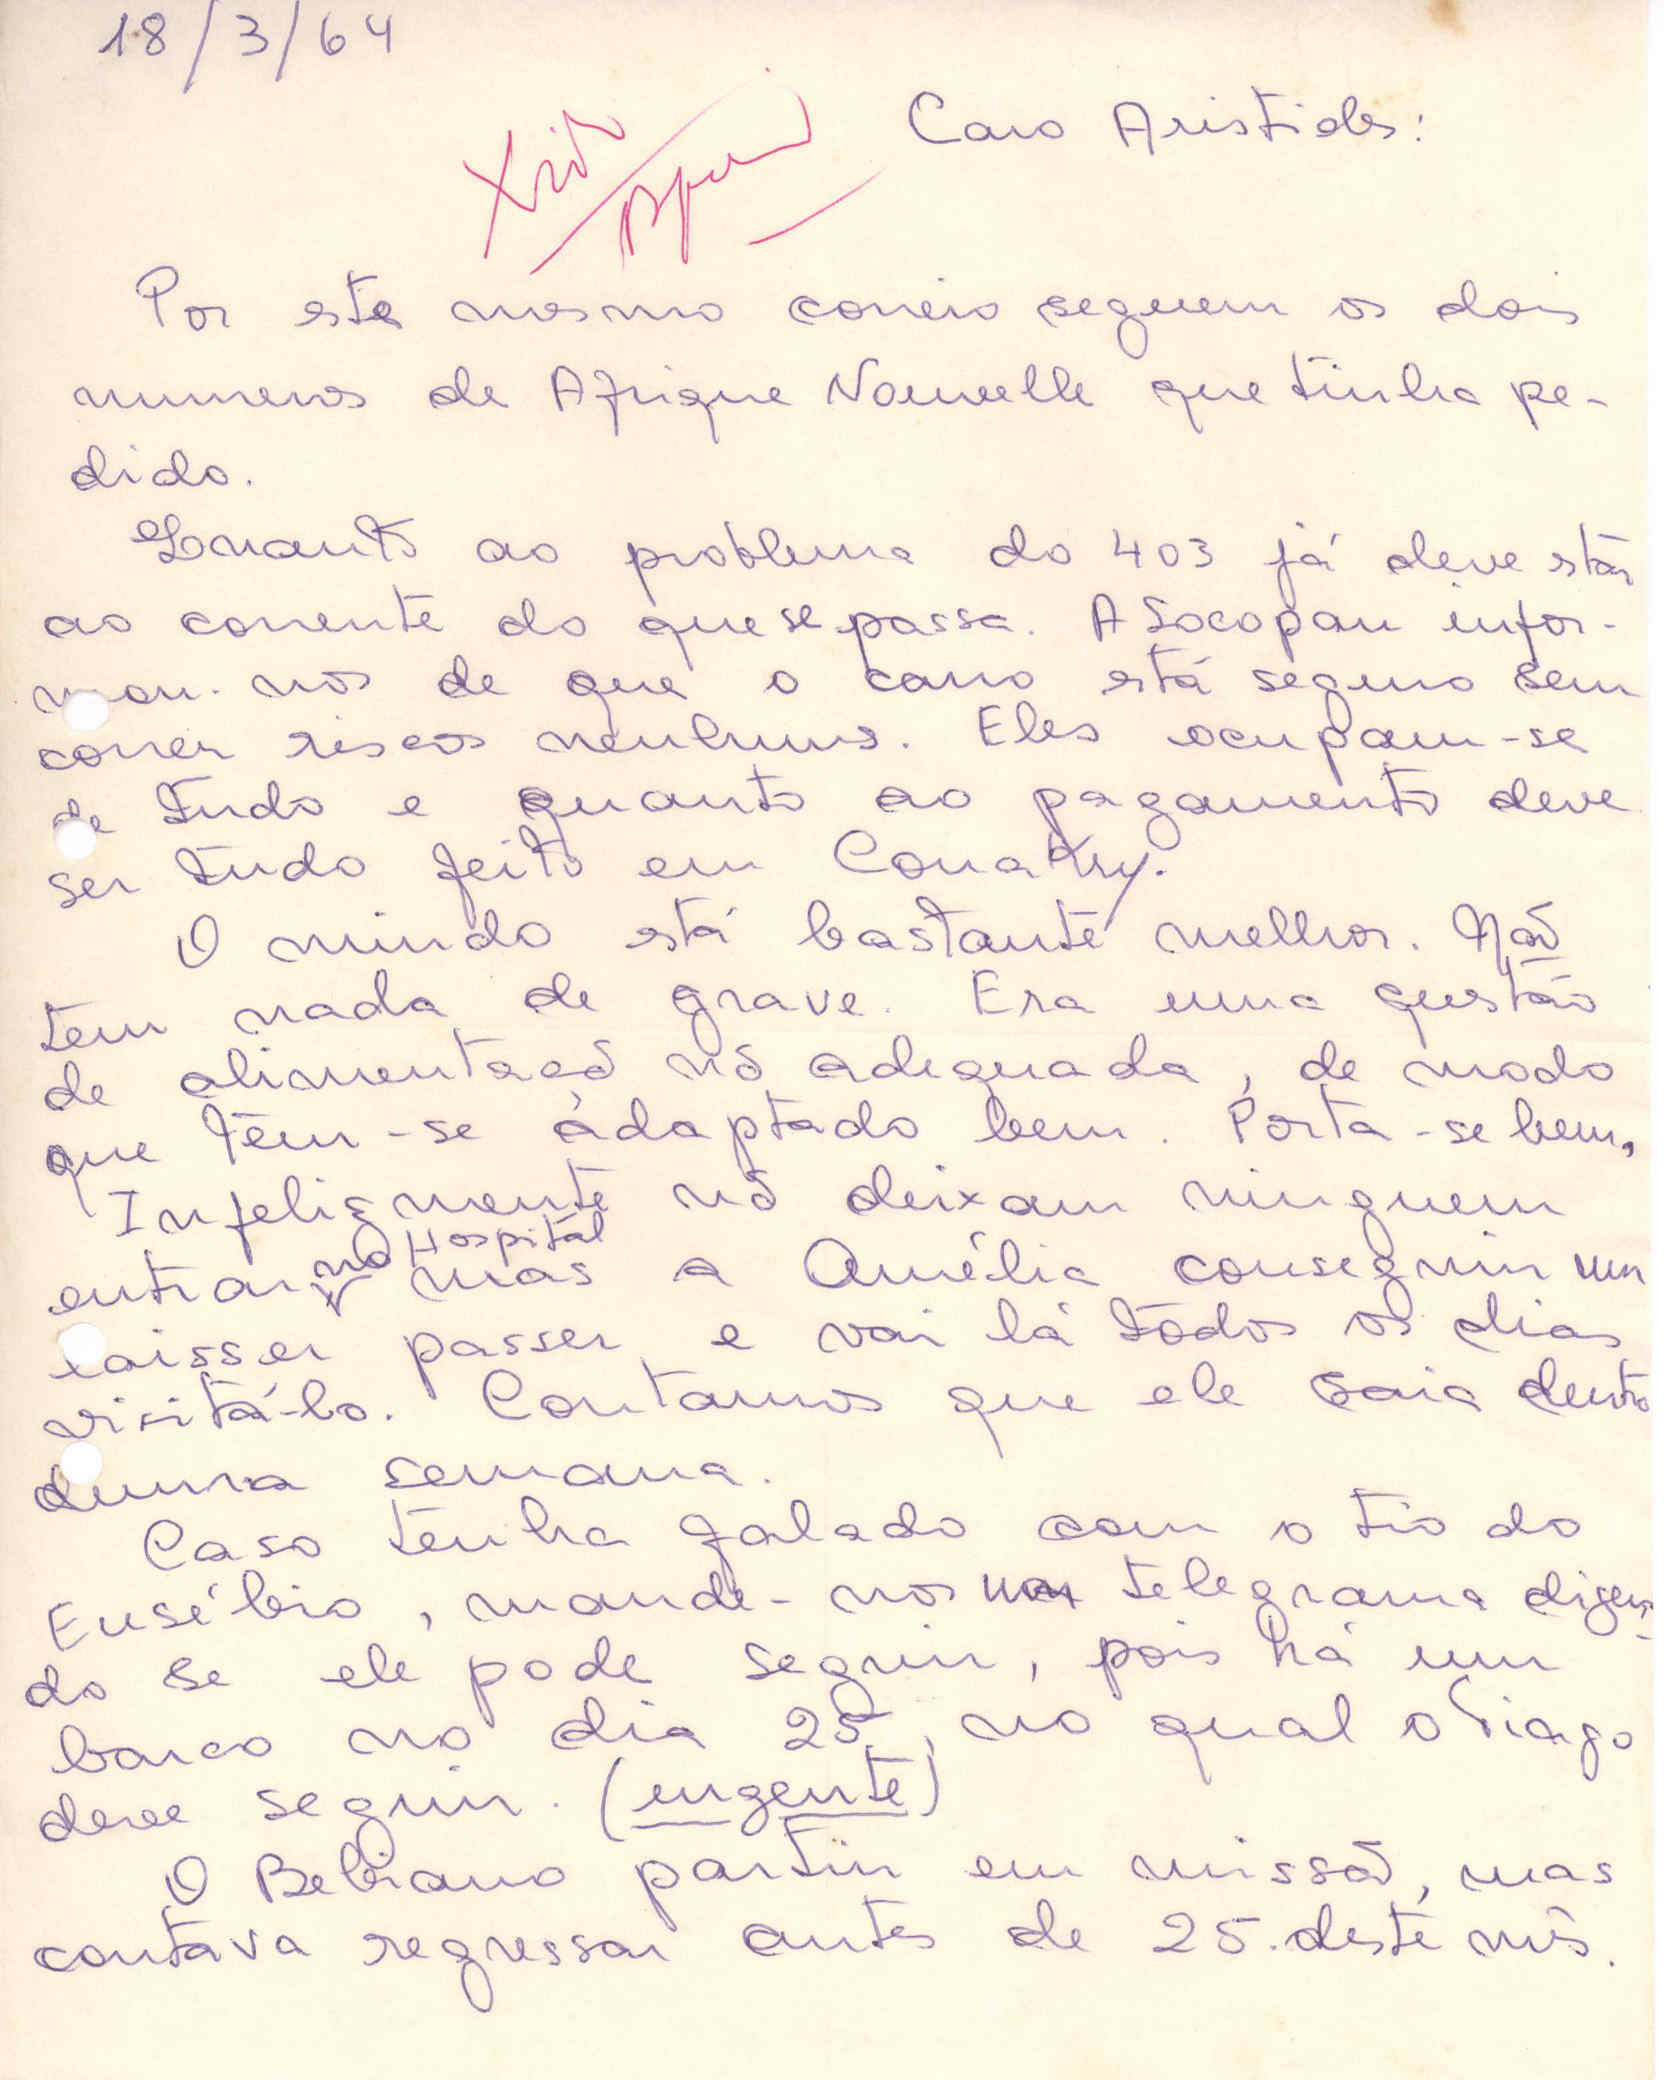 18/3/64
Caro Aristides:
Por este mesmo correio seguem os dois
numeros de Afrique Nouvelle que tinha pe-
dido.
Quanto ao problema do 403 já deve estar
ao corrente do que se passa. A Socopau infor-
mou-nos de que o carro está seguro sem
correr riscos nenhuns. Eles ocupam-se
de tudo e quanto ao pagamento deve
ser tudo feito em Conakry.
O miudo está bastante melhor. Não
tem nada de grave. Era uma questão
de alimentação nõ adequada, de modo
que têm-se adaptado bem. Porta-se bem.
Infelizmente nõ deixam ninguem
entrar no Hospital mas a Amélia conseguiu um
laisser passer e vai lá todos os dias
visitá-lo. Contamos que ele saia dentro
duma semana.
Caso tenha falado com o tio do
Eusébio, mande-nos um telegrama dizen-
do se ele pode seguir, pois há um
barco no dia 25, no qual o Tiago
deve seguir. (urgente)
O Bebiano partiu em missão, mas
contava regressar antes de 25 deste mês.